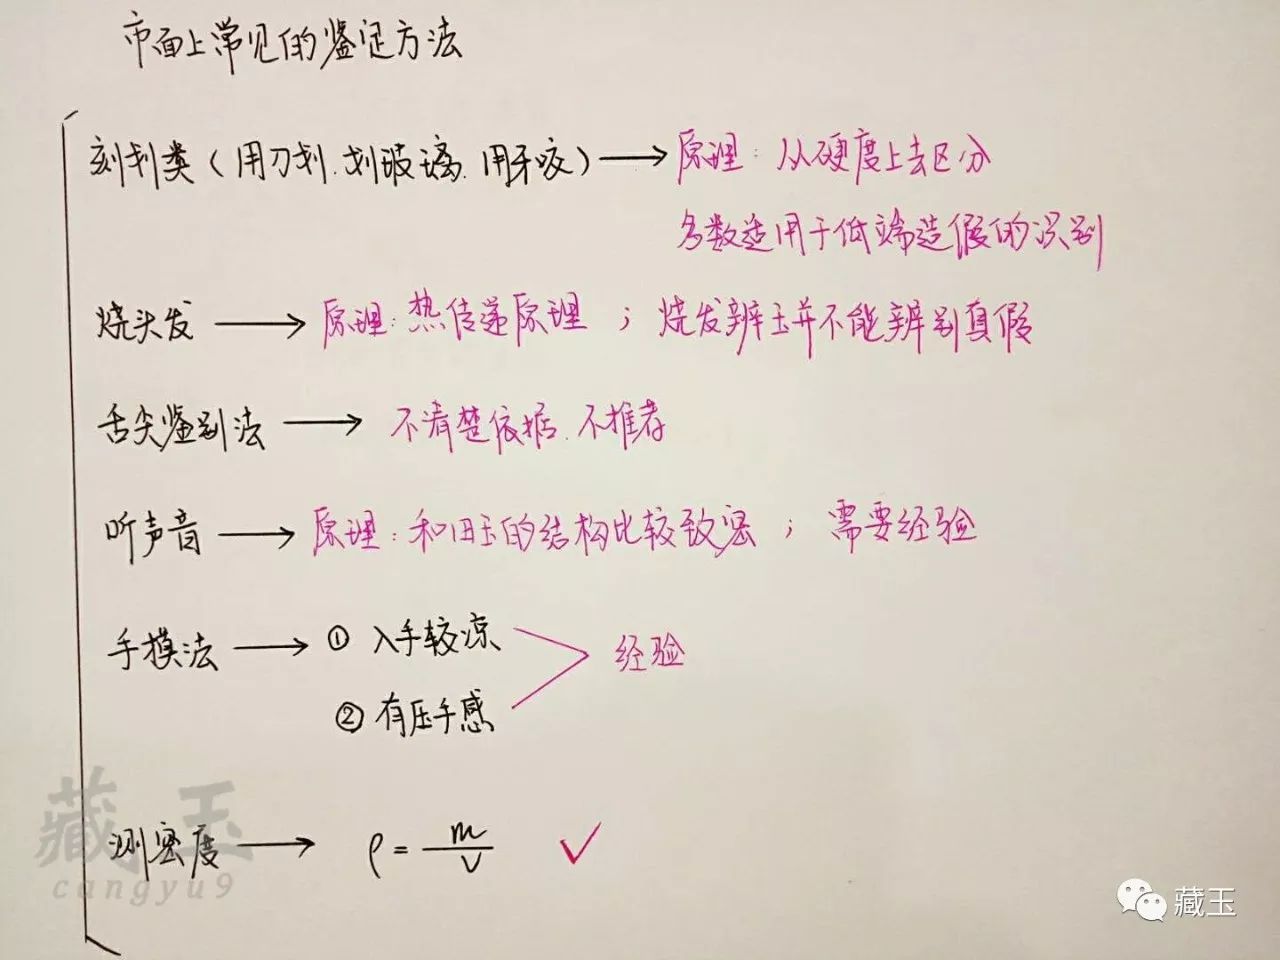 市面上常见的鉴定方法
刻划类（用刀划.划玻璃.用牙咬）→原理：从硬度上去区分
多数适用于低端造假的识别
烧头发→原理：热传递原理；烧发辨玉并不能辨别真假
舌尖鉴别法→不清楚依据.不推荐
听声音→原理：和田玉的结构比较致密；需要经验
手摸法→①入手较凉 经验
②有压手感
测密度→ρ=m/V ✓
藏玉
cangyu9
藏玉